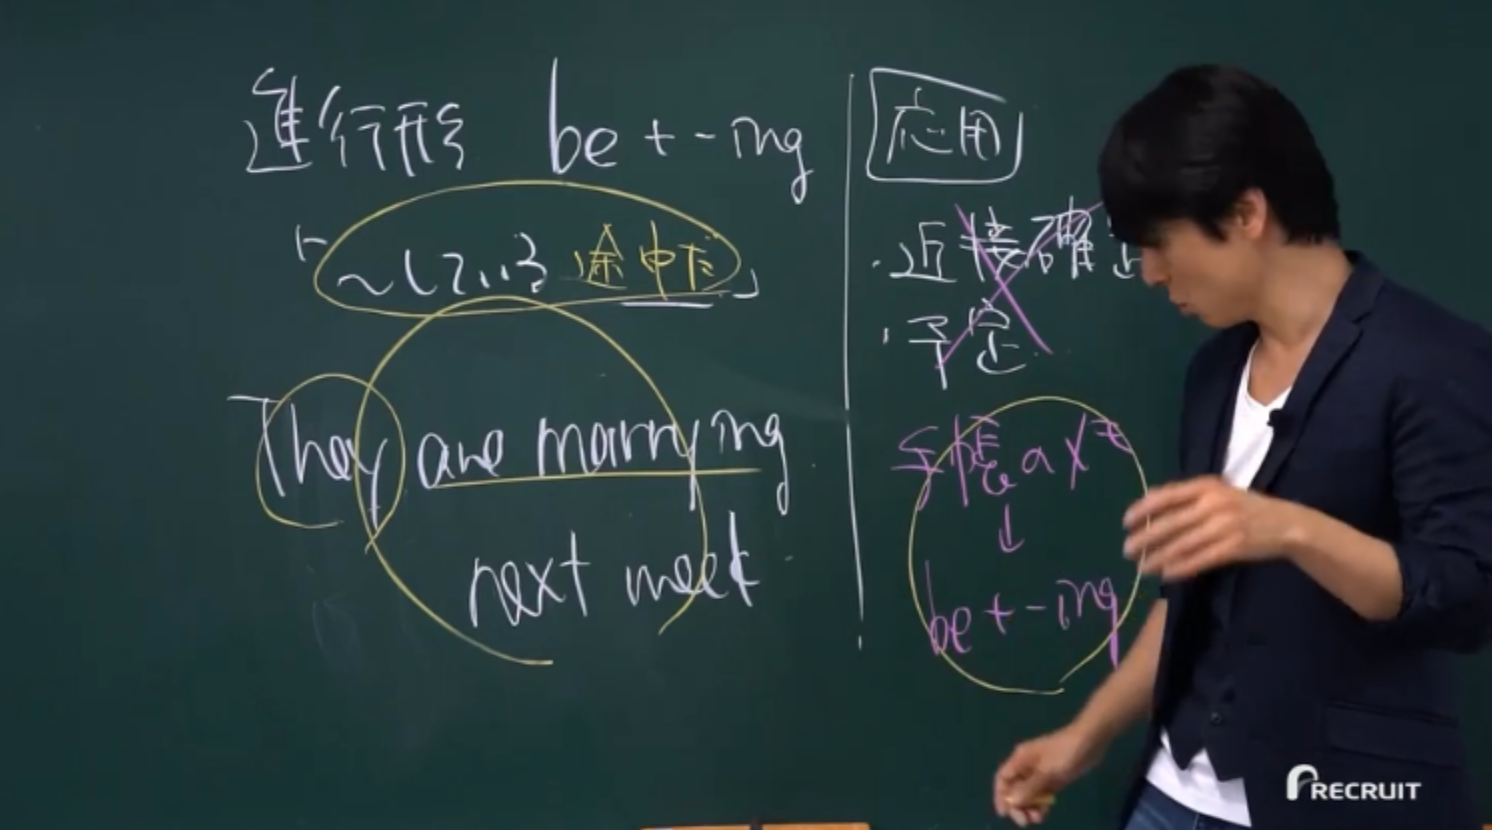 進行形 be + -ing
「~している途中だ」
They are marrying
next week
応用
・近接確定
・予定
手帳のメモ
↓
be + -ing
RECRUIT